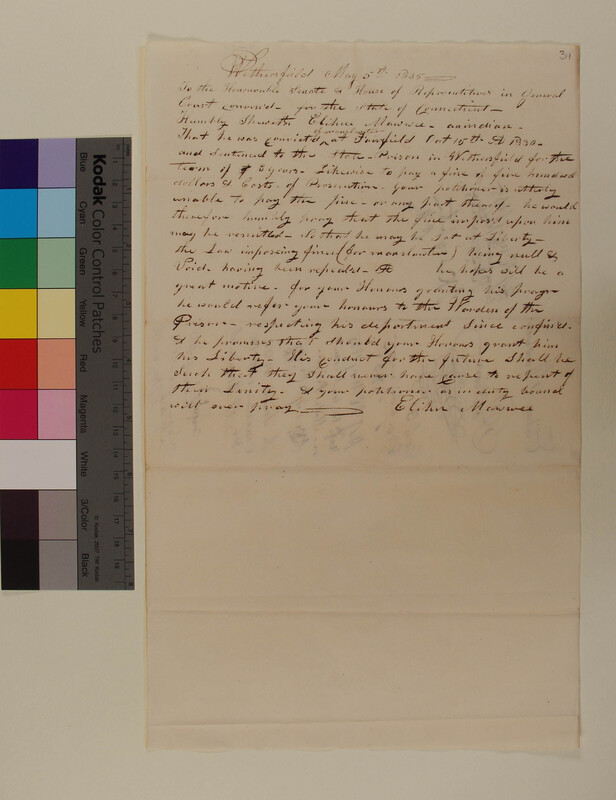 31
Wethersfield May 5th 1835
To the Honourable Senate & House of Representitives in General
Court convened - for the State of Connecticut -
Humbly Sheweth Elihu Mawwee - an indian -
of manslaughter
That he was convicted at Fairfield Oct 15th A D 183
and sentenced to the State - Prison in Wethersfield for the
term of 5 years - Likewise to pay a fine of five hundred
dollars & Costs of Prosecution - Your petitioner is utterly
unable to pay the fine - or any part thereof - he would
therefore humbly pray that the fine imposed upon him
may be remitted - so that he may be Set at Liberty -
the Law imposing fines (for manslauter) being null &
Void - having been repealed - he hopes will be a
great motive - for your Honours granting his prayr
he would refer your honours to the Warden of the
Prison - respecting his department since confined -
& he promises that should your Honours grant him
his Liberty - His conduct for the future Shall be
Such that they shall never have cause to repent of
their Lenity - & your petitioner as in duty bound
will ever pray Elihu Mawwee
Kodak Color Control Patches
Blue
Cyan
Green
Yellow
Red
Magenta
White
3/Color
Black